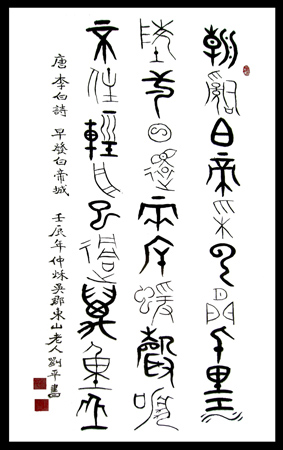 朝辭白帝彩雲間千里江
陵一日還兩岸猿聲啼
不住輕舟已過萬重山
唐 李白詩 早發白帝城 壬辰年仲秋吳郡東山老人劉平書